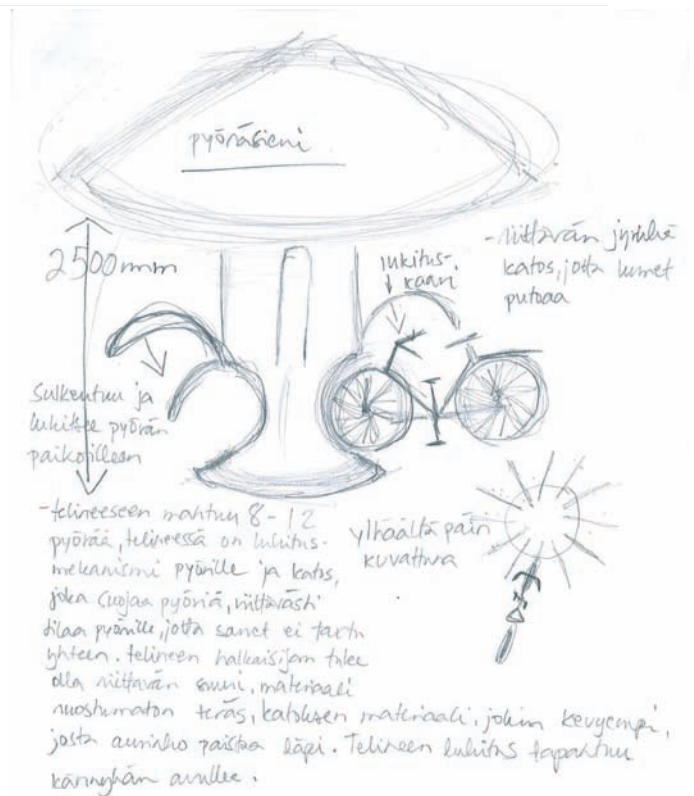 pyöräsieni
2500mm
lukitus-
kaari
-riittävän jyrkkä
katos, jotta lumet
putoaa
Sulkeutuu ja
lukitsee pyörän
paikoilleen
-telineeseen mahtuu 8-12
pyörää, telineessä on lukitus-
mekanismi pyörille ja katos,
joka suojaa pyöriä, riittävästi
tilaa pyörille, jotta sarvet ei tartu
yhteen. telineen halkaisijan tulee
olla riittävän suuri, materiaali
ruostumaton teräs, katoksen materiaali, jokin kevyempi,
josta aurinko paistaa läpi. Telineen lukitus tapahtuu
kännykän avulla.
ylhäältä päin
kuvattuna